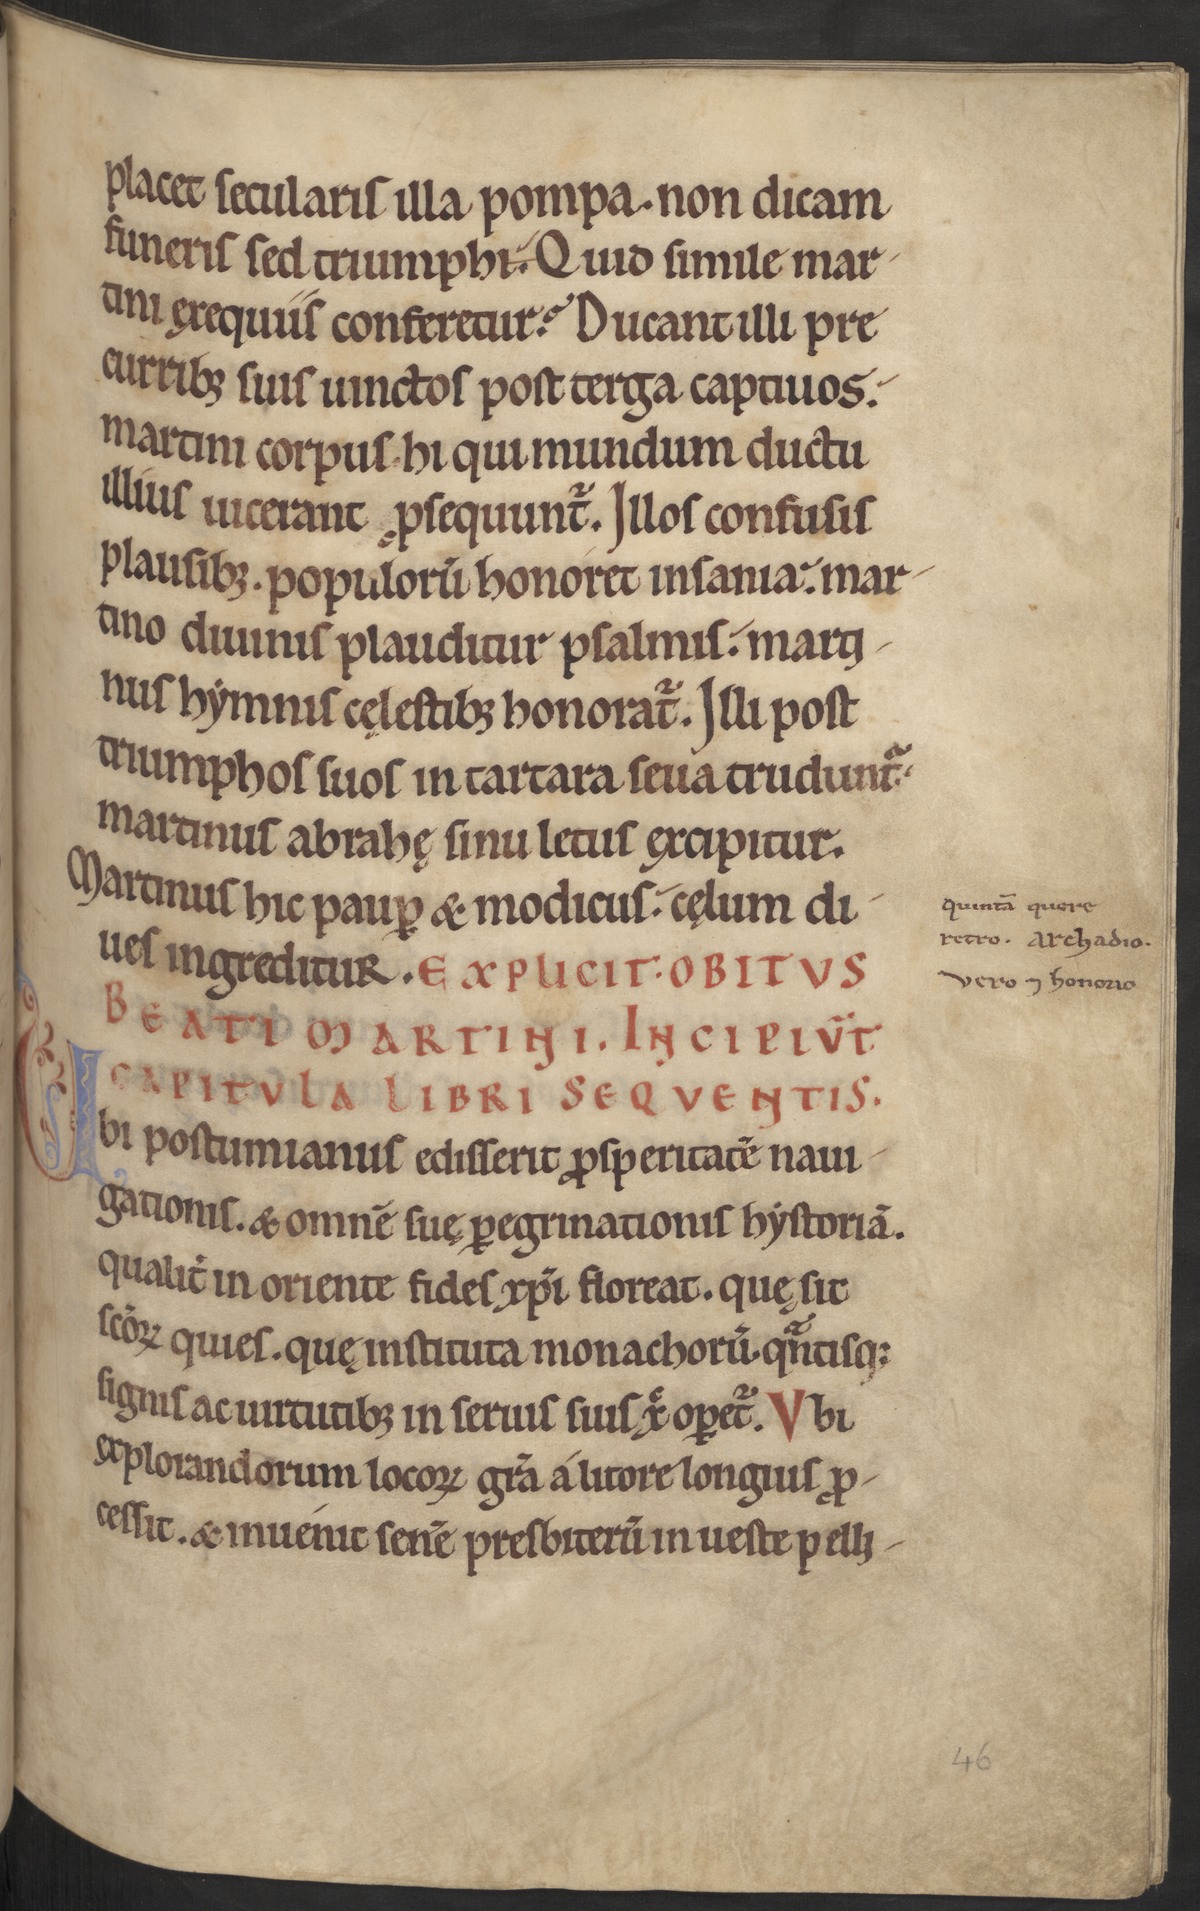 placet secularis illa pompa. non dicam
funeris sed triumphi. Quid simile mar-
tini ęxequiis conferetur? Ducant illi pre
curribꝫ suis uinctos post terga captiuos.
martini corpus hi qui mundum ductu
illius uicerant ꝓsequunt᷑. Illos confusis
plausibꝫ. populorū honoret insania. mar-
tino diuinis plauditur psalmis. marti-
nus hẏmnis cęlestibꝫ honorat᷑. Illi post
triumphos suos in tartara seua trudunt᷑.
martinus abrahę sinu letus ęxcipitur.
Martinus hic paup̲ & modicus. cęlum di-
ues ingreditur. EXPLICIT. OBITVS
BEATI MARTINI. INCIPIV̄T
CAPITVLA LIBRI SEQVENTIS.
Ubi postumianus edisserit ꝓsperitatē naui-
gationis. & omnē suę ꝑegrinationis hẏstoriā.
qualit̄ in oriente fides xp̄i floreat. quę sit
scōꝝ quies. quę instituta monachorū. qͣntisqꝫ
signis ac uirtutibꝫ in seruis suis xͨ oꝑet᷑. Vbi
ęxplorandorum locoꝝ gr̄a á litore longius ꝓ-
cessit. & inuenit senē presbiterū in ueste pellꝫ-
quintā quere
retro. Archadio.
vero ⁊ honorio
46